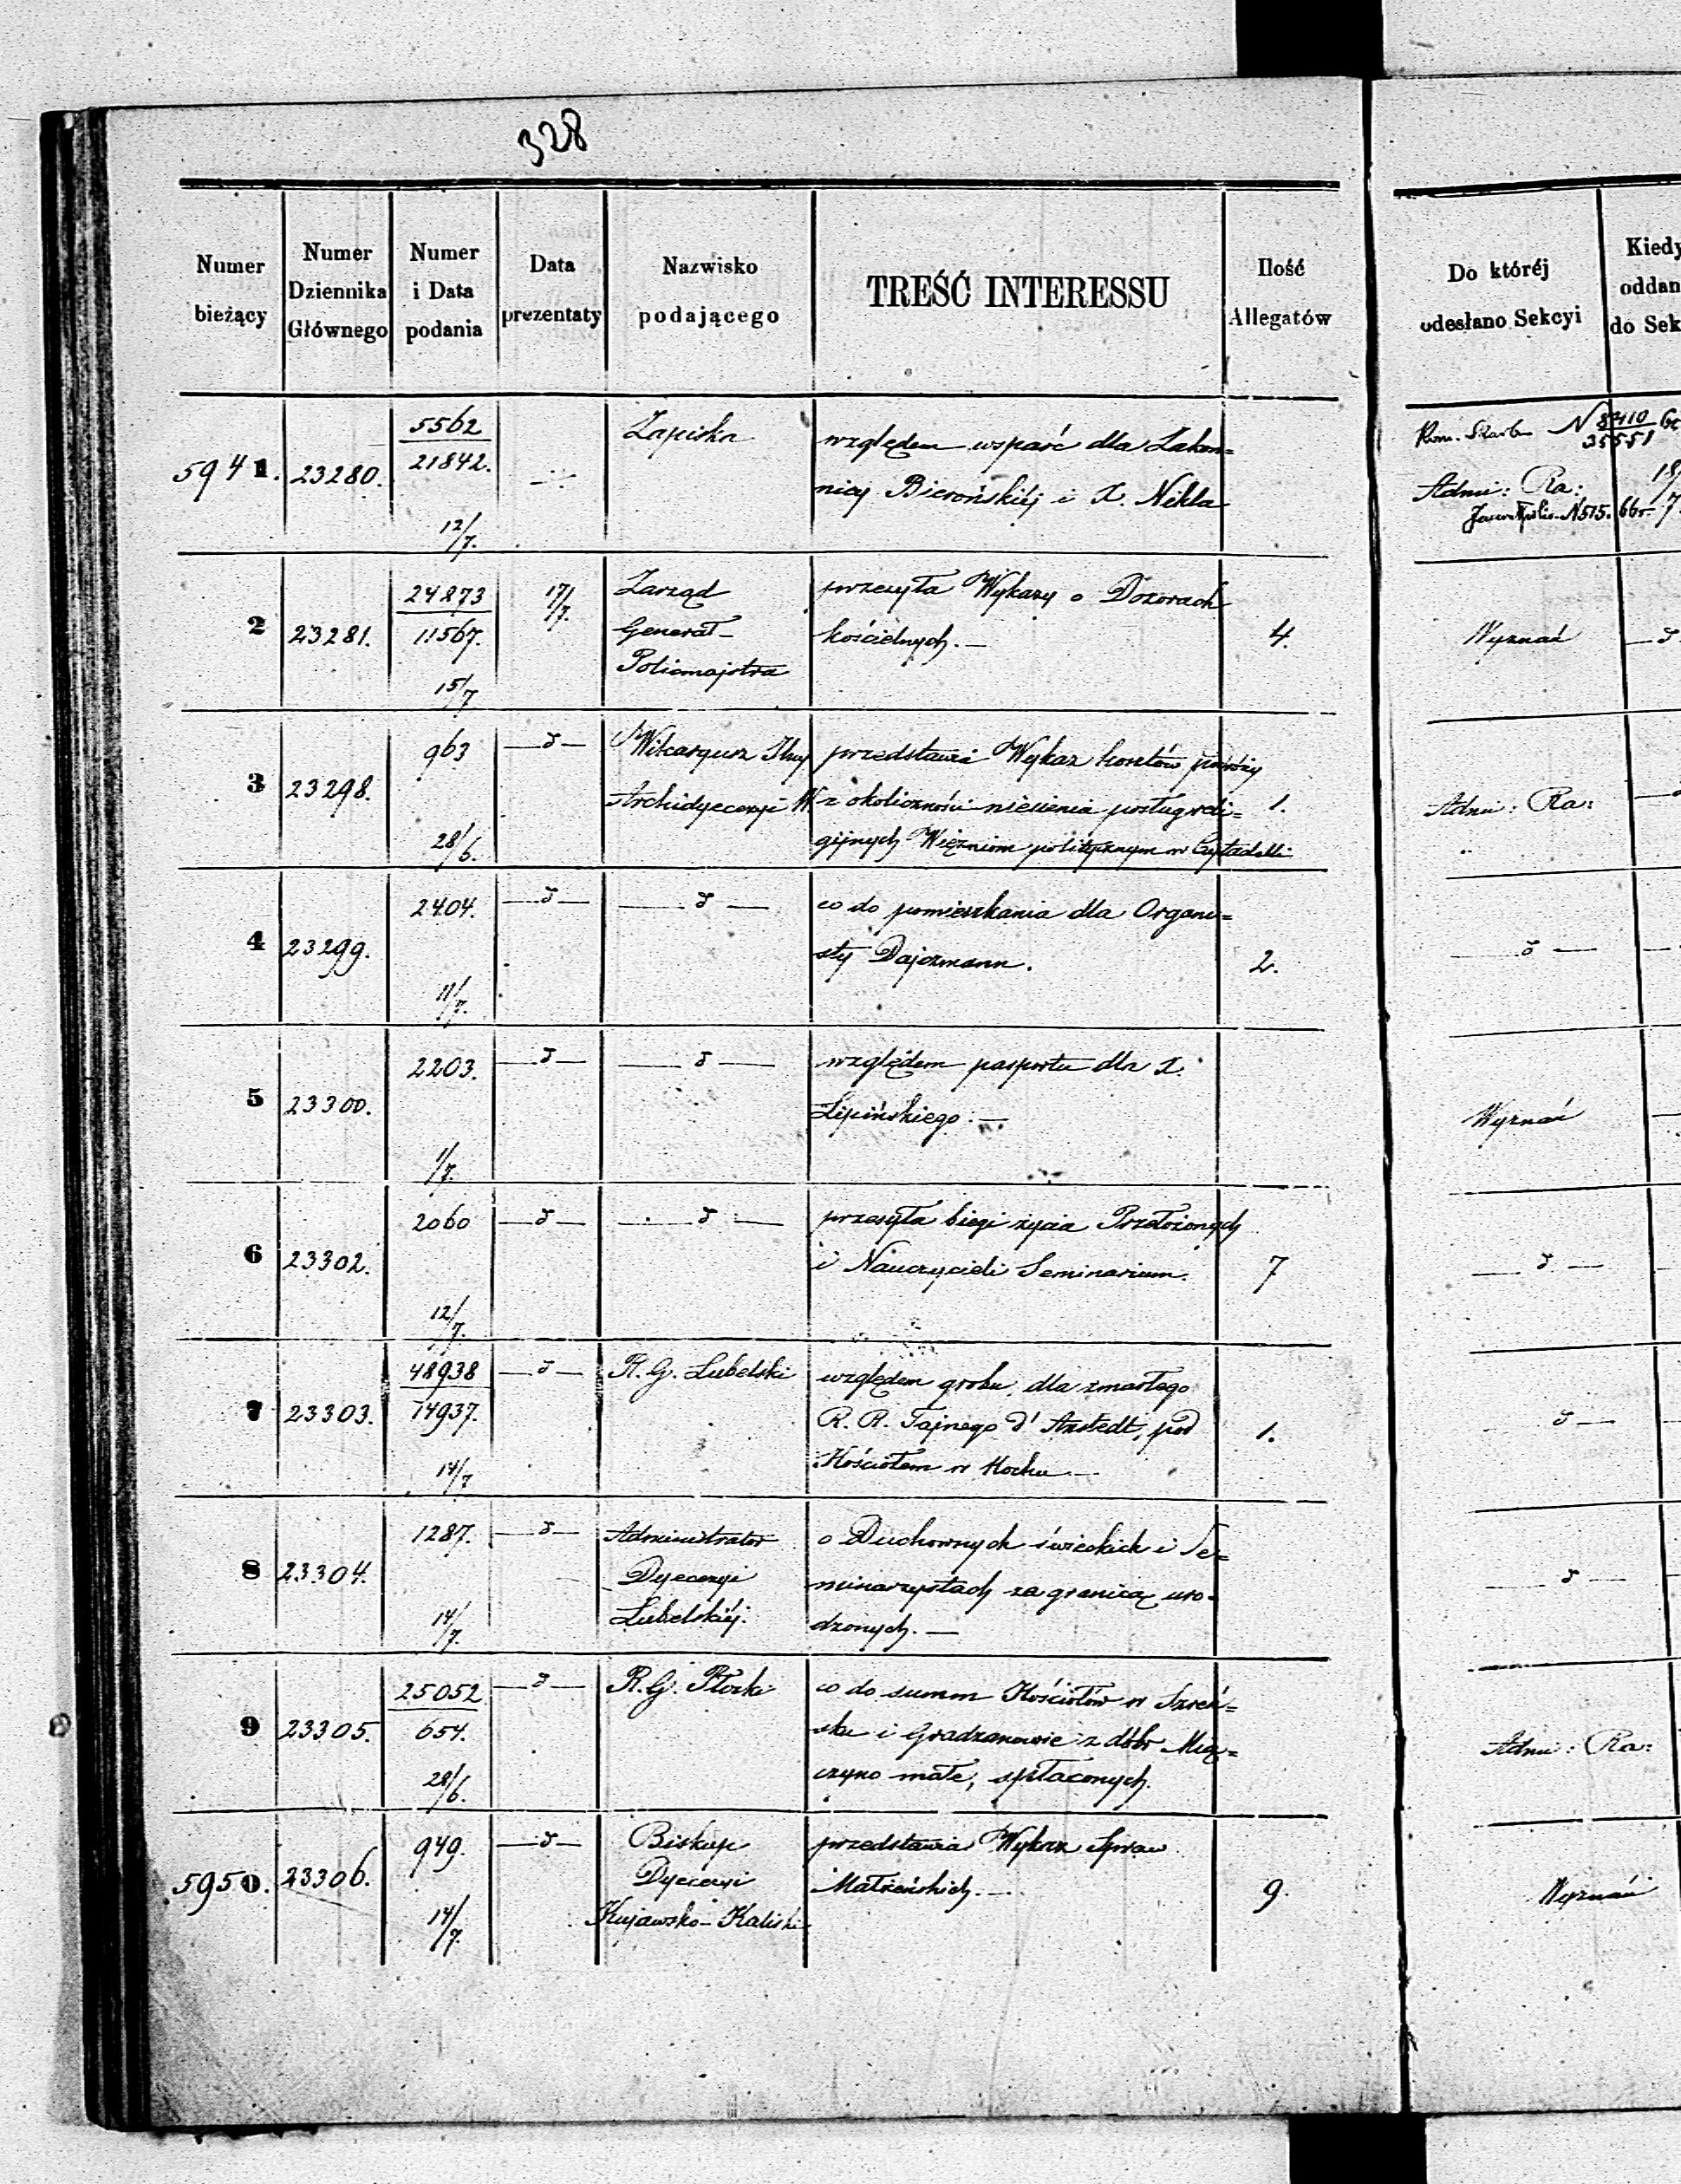 328
Numer bieżący
Numer Dziennika Głównego
Numer i Data podania
Data prezentaty
Nazwisko podającego
TREŚĆ INTERESSU
Ilość Allegatów
Do któréj odesłano Sekcyi
Kiedy oddan do Sek
5941. 23280. 5562 / 21842. 12/7. Zapiska
względem wsparć dla Zakon=
nicy Bierońskiéj i X. Nikla
N 3410 / 35551
Admi: Ra:
N 515.
2 23281. 24873 / 11567. 15/7 17/7.
Zarząd
Generał-
Policmajstra
przesyła Wykazy o Dozorach
kościelnych. —
4.
Wyznań
3 23298. 963 28/6. — d —
Wikaryusz
Archidyecezyi W.
przedstawia Wykaz kosztów podróży
z okoliczności niesienia posług reli=
gijnych Więźniom politycznym w Cytadelli
1.
Admi: Ra:
4 23299. 2404. 11/7. — d — — d —
co do pomieszkania dla Organi=
sty Dajczmann.
2.
d —
5 23300. 2203. 1/7. — d — — d —
względem pasportu dla X.
Lipińskiego. —
Wyznań
6 23302. 2060 12/7. — d — — d —
przesyła biegi życia Przełożonych
i Nauczycieli Seminarium.
7
— d —
7 23303. 48938 / 14937. 14/7 — d — R. G. Lubelski
względem grobu, dla zmarłego
R. R. Tajnego d'Arstedt, pod
Kościołem w Kocku. —
1.
d —
8 23304. 1287. 14/7. — d —
Administrator
Dyecezyi
Lubelskiéj.
o Duchownych świeckich i Se=
minarzystach za granicą uro=
dzonych. —
— d —
9 23305. 25052 / 654. 28/6. — d — R. G. Płocki
co do summ Kościołów w Szreń=
sku i Gradzanowie z dóbr Mią=
czyno małe, spłaconych.
Admi: Ra:
5950. 23306. 949. 14/7. — d —
Biskup
Dyecezyi
Kujawsko-Kaliski
przedstawia Wykaz Spraw
Małżeńskich. —
9.
Wyznań